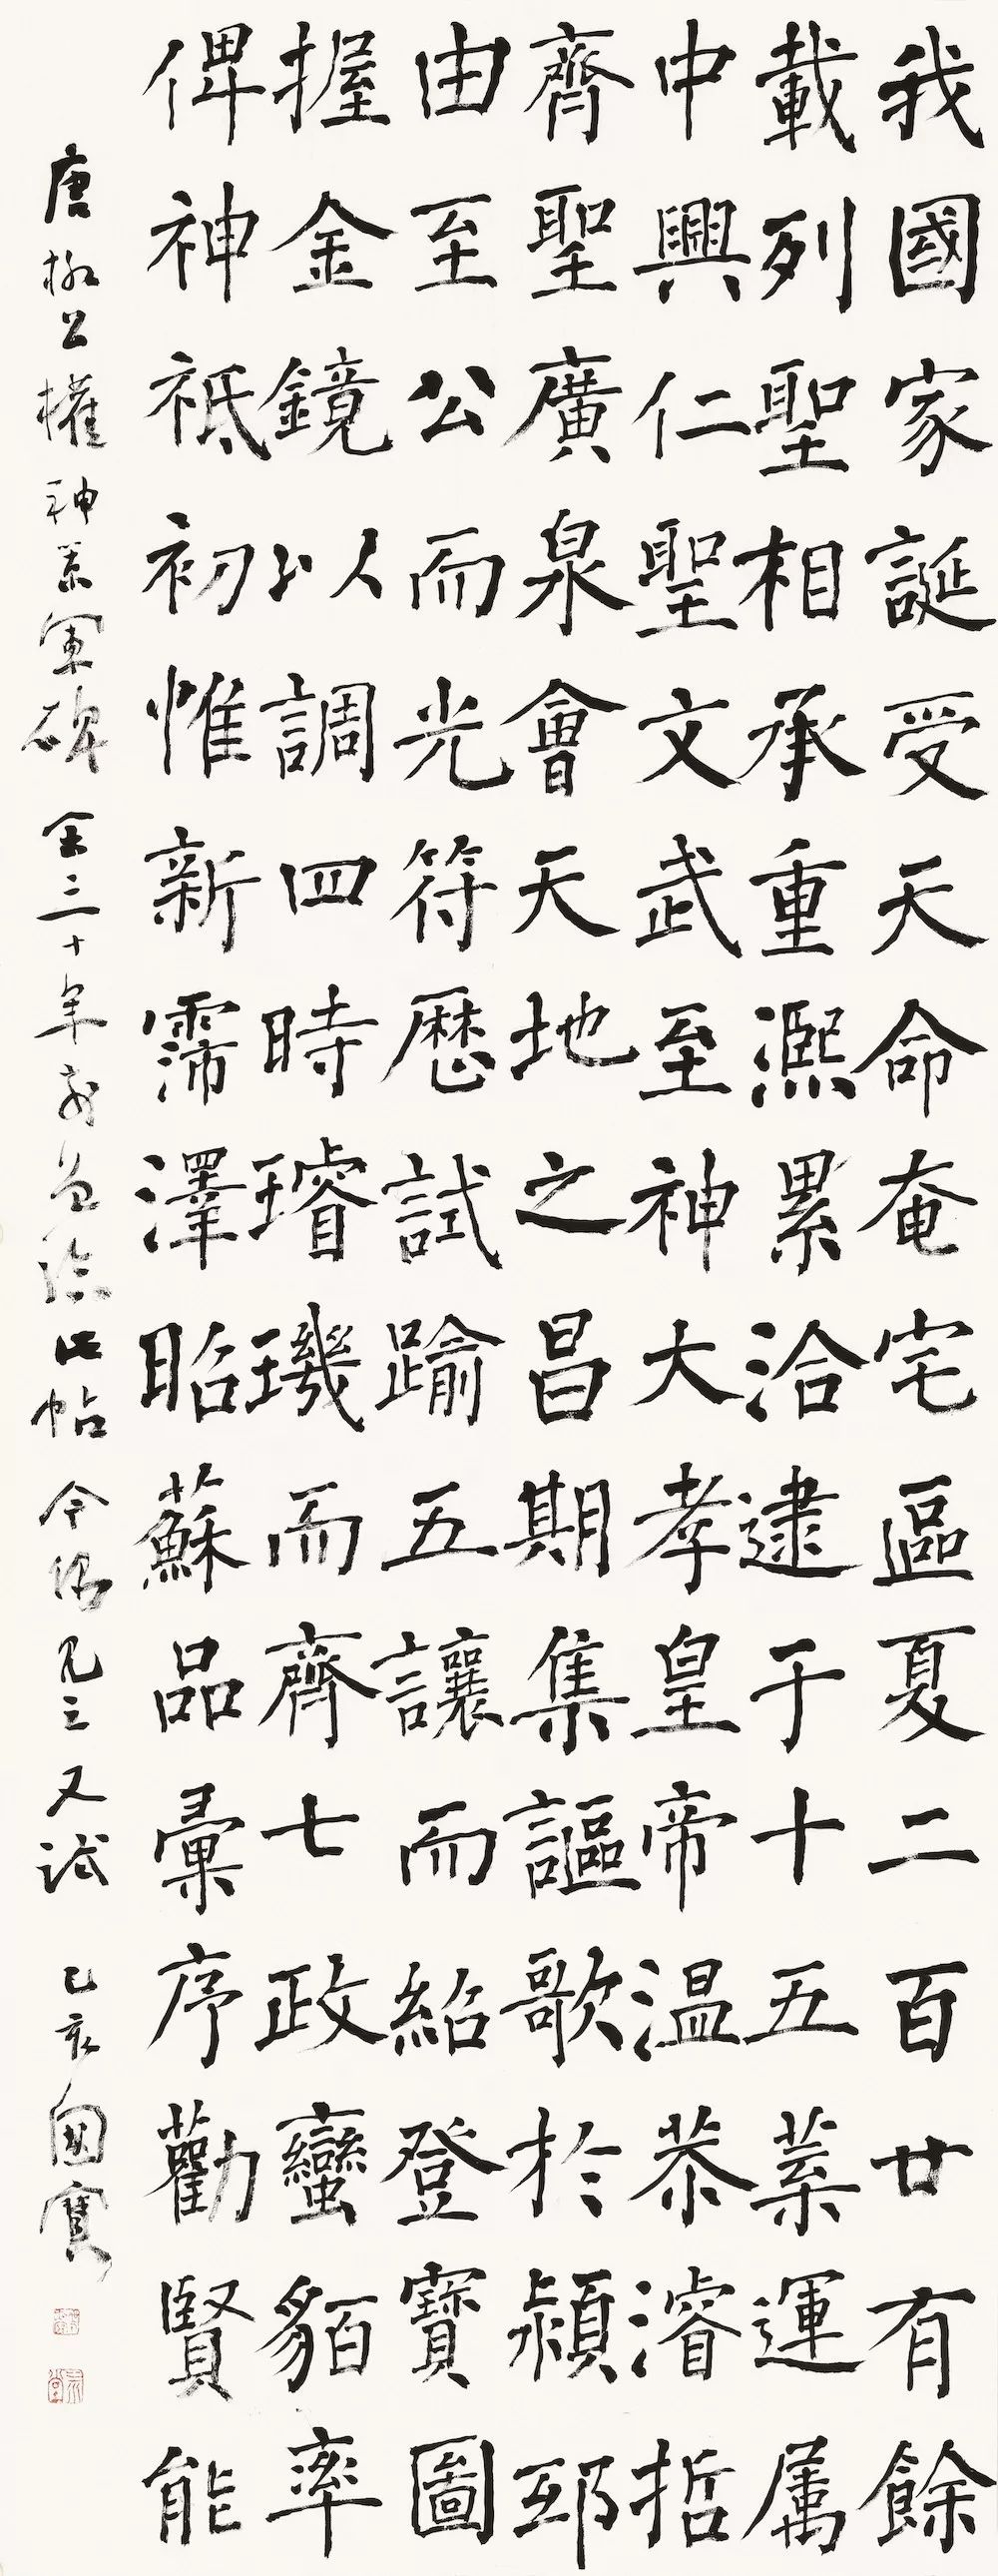 我國家誕受天命奄宅區夏二百廿有餘
載列聖相承重熙累洽逮于十五葉運属
中興仁聖文武至神大孝皇帝温恭濬哲
齊聖廣泉會天地之昌期集謳歌於潁邸
由至公而光符歷試踰五讓而紹登寶圖
握金鏡以調四時璿璣而齊七政蠻貊率
俾神祇初惟新霈澤昭蘇品彙序勸賢能
唐柳公權神策軍碑 余三十年前曾臨此帖 今偶見之又試 乙亥國寶